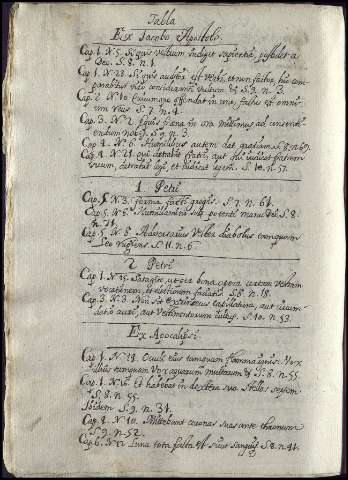 Tabla
Ex Jacobo Apostolo.
Cap. 1. N. 5. Si quis vestrum indiget sapientia, postulet a
Deo. S. 8. n. 1.
Cap. 1. N. 23. Si quis auditor est verbi, et non factor, hic com-
parabitur viro consideranti vultum &. S. 9. n. 3.
Cap. 2. N. 10. offendat in uno, factus est omni-
um reus. S. 7. n. 4.
Cap. 3. N. 2. equis frena in ora mittimus ad consenti-
endum nobis. S. 9. n. 3.
Cap. 4. N. 6. Humilibus autem dat gratiam. S. 8. n. 69.
Cap. 4. N. 11. qui detrahit fratri, aut qui iudicat fratrem
suum, detrahit legi, et iudicat legem. S. 10. n. 57.
1. Petri
Cap. 5. N. 3. forma facti gregis. S. 7. n. 61.
Cap. 5. N. 6. Humiliamini sub potenti manu Dei. S. 8.
n. 71.
Cap. 5. N. 8. Adversarius vester diabolus tamquam
Leo rugiens. S. 11. n. 6.
2. Petri
Cap. 1. N. 15. Satagite, ut per bona opera certam vestram
vocationem, et electionem faciatis. S. 8. n. 18.
Cap. 3. N. 3.
auri, aut vestimentorum cultus. S. 10. n. 53.
Ex Apocalipsi.
Cap. 1. N. 14. Oculi eius tamquam flamma ignis. Vox
illius tamquam vox aquarum multarum &. S. 8. n. 55.
Cap. 1. N. 16. Et habebat in dextera sua stellas septem.
S. 8. n. 55.
Ibidem S. 9. n. 34.
Cap. 4. N. 10. Mittebant coronas suas ante thronum
S. 9. n. 52.
Cap. 6. N. 12. Luna tota facta est sicut sanguis S. 8. n. 44.